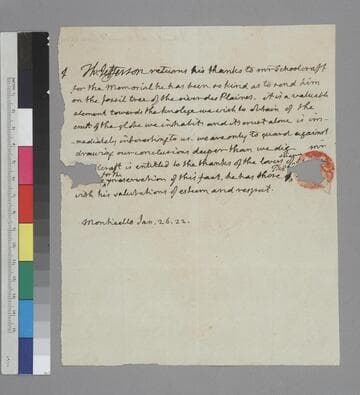 Th: Jefferson returns his thanks to mr Schoolcraft
for the Memorial he has been so kind as to send him
on the fossil tree of the river des Plaines. it is a valuable
element towards the knolege we wish to obtain of the
crust of the globe we inhabit: and it's crust alone is im-
mediately interesting to us. we are only to guard against
drawing our conclusions deeper than we dig. mr
craft is entitled to the thanks of the lovers of
for the preservation of this fact, he has those
with his salutations of esteem and respect.
Monticello Jan. 26. 22.